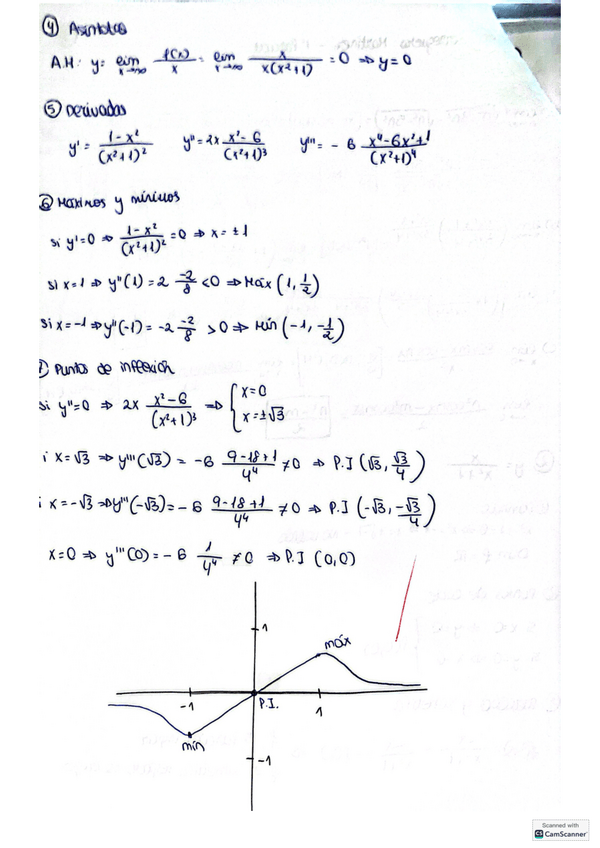 ④ Asíntotas
A.H: y= lim x→∞ f(x)/x = lim x→∞ x/(x(x²+1)) = 0 ⇒ y=0
⑤ Derivadas
y' = (1-x²)/(x²+1)² y''= 2x (x²-6)/(x²+1)³ y'''= - 6 (x⁴-6x²+1)/(x²+1)⁴
⑥ Máximos y mínimos
si y'=0 ⇒ (1-x²)/(x²+1)² =0 ⇒ x= ±1
si x=1 ⇒ y''(1)= 2 -2/8 <0 ⇒ Máx (1, 1/2)
si x=-1 ⇒ y''(-1)= -2 -2/8 >0 ⇒ Mín (-1, -1/2)
7) Puntos de inflexión
si y''=0 ⇒ 2x (x²-6)/(x²+1)³ ⇒ { x=0 x=±√3
i x=√3 ⇒ y'''(√3) = -6 (9-18+1)/4⁴ ≠0 ⇒ P.I (√3, √3/4)
i x=-√3 ⇒ y'''(-√3)= - 6 (9-18+1)/4⁴ ≠0 ⇒ P.I (-√3, -√3/4)
x=0 ⇒ y'''(0) = - 6 1/4⁴ ≠0 ⇒ P.I (0,0)
1
máx
-1
P.I.
1
mín
-1
Scanned with
CS CamScanner